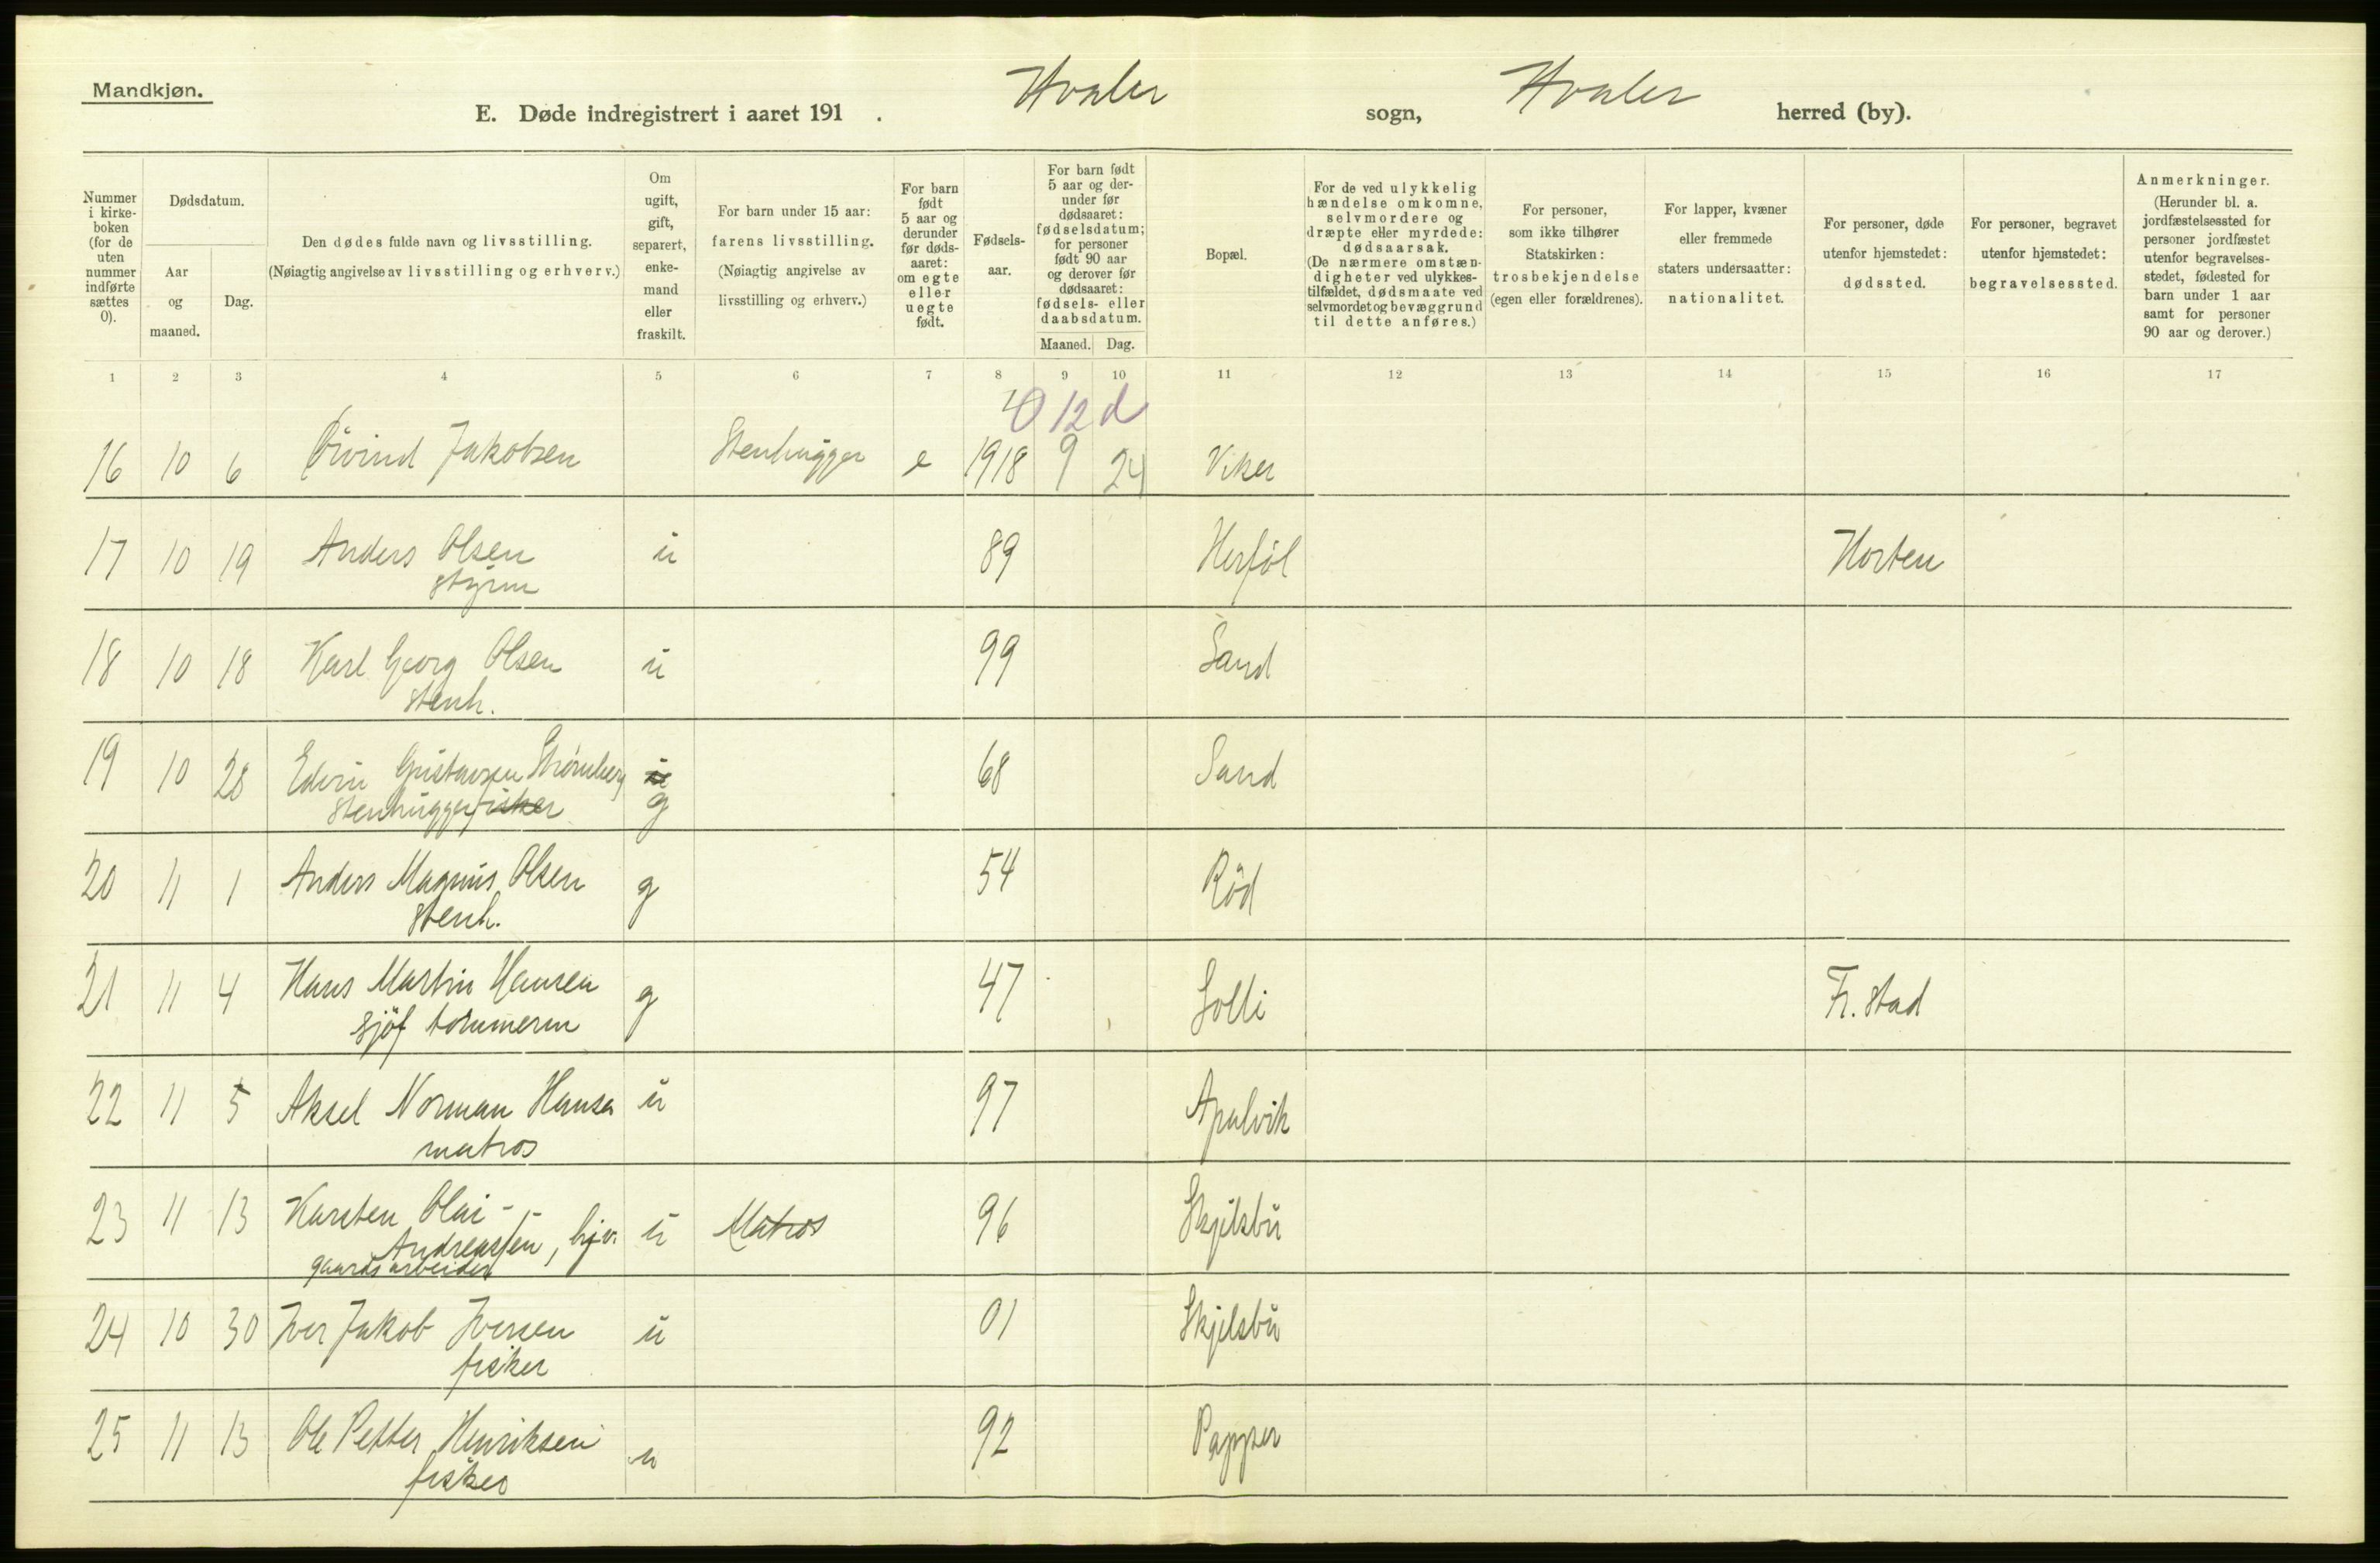 Mandkjøn.
E. Døde indregistrert i aaret 191 . Hvaler sogn, Hvaler herred (by).
Nummer i kirkeboken (for de uten nummer indførte sættes 0).
Dødsdatum.
Aar og maaned.
Dag.
Den dødes fulde navn og livsstilling.
(Nøiagtig angivelse av livsstilling og erhverv.)
Om ugift, gift, separert, enkemand eller fraskilt.
For barn under 15 aar:
farens livsstilling.
(Nøiagtig angivelse av
livsstilling og erhverv.)
For barn født 5 aar og derunder før dødsaaret: om egte eller uegte født.
Fødselsaar.
For barn født 5 aar og derunder før dødsaaret: fødselsdatum; for personer født 90 aar og derover før dødsaaret: fødsels- eller daabsdatum.
Maaned. Dag.
Bopæl.
For de ved ulykkelig hændelse omkomne, selvmordere og dræpte eller myrdede: dødsaarsak.
(De nærmere omstændigheter ved ulykkestilfældet, dødsmaate ved selvmordet og bevæggrund til dette anføres.)
For personer, som ikke tilhører Statskirken: trosbekjendelse (egen eller forældrenes).
For lapper, kvæner eller fremmede staters undersaatter: nationalitet.
For personer, døde utenfor hjemstedet: dødssted.
For personer, begravet utenfor hjemstedet: begravelsessted.
Anmerkninger.
(Herunder bl. a. jordfæstelsessted for personer jordfæstet utenfor begravelsesstedet, fødested for barn under 1 aar samt for personer 90 aar og derover.)
1 2 3 4 5 6 7 8 9 10 11 12 13 14 15 16 17
0 12 d
16 10 6 Öivind Jakobsen Stenhugger e 1918 9 24 Viker
17 10 19 Anders Olsen u 89 Herföl Horten
styrm
18 10 18 Karl Georg Olsen u 99 Sand
stenh.
19 10 28 Edvin Gustavsen Strömberg u 68 Sand
stenhugger fisker g
20 11 1 Anders Magnus Olsen g 54 Röd
stenh.
21 11 4 Hans Martin Hansen g 47 Solli Fr.stad
sjöf tömmerm
22 11 5 Aksel Norman Hansen u 97 Apalvik
matros
23 11 13 Karsten Olai - u Matros 96 Skjelsbu
Andreassen, hjv.
gaardsarbeider
24 10 30 Iver Jakob Iversen u 01 Skjelsbu
fisker
25 11 13 Ole Petter Henriksen u 92 Papper
fisker